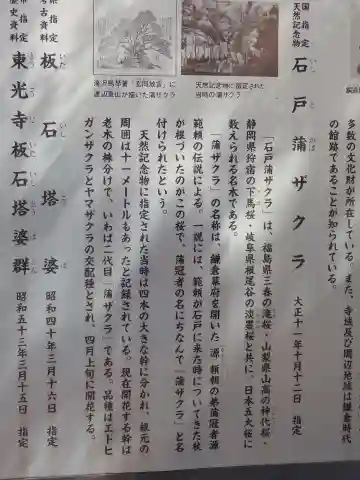 多数の文化財が所在している。また、寺域及び周辺地域は鎌倉時代
の館跡であることが知られている。
国指定
天然記念物
石戸蒲ザクラ
いし
と
かば
大正十一年十月十二日 指定
天然記念物に指定された
当時の蒲ザクラ
滝沢馬琴著「玄同放言」に
渡辺崋山が描いた蒲ザクラ
「石戸蒲ザクラ」は、福島県三春の滝桜・山梨県山高の神代桜・
静岡県狩宿の下馬桜・岐阜県根尾谷の淡墨桜と共に、日本五大桜に
数えられる名木である。
「蒲ザクラ」の名称は、鎌倉幕府を開いた源頼朝の弟蒲冠者源
範頼の伝説による。一説には、範頼が石戸に来た時についてきた杖
が根づいたのがこの桜で、蒲冠者の名にちなんで「蒲ザクラ」と名
付けられたという。
天然記念物に指定された当時は四本の大きな幹に分かれ、根元の
周囲は十一メートルもあったと記録されている。現在開花する幹は
老木の株分けで、いわば二代目「蒲ザクラ」である。品種はエドヒ
ガンザクラとヤマザクラの交配種とされ、四月上旬に開花する。
県指定
考古資料
板石塔婆
いた
いし
とう
ば
昭和四十年三月十六日 指定
市指定
歴史資料
東光寺板石塔婆群
昭和五十三年三月十五日 指定